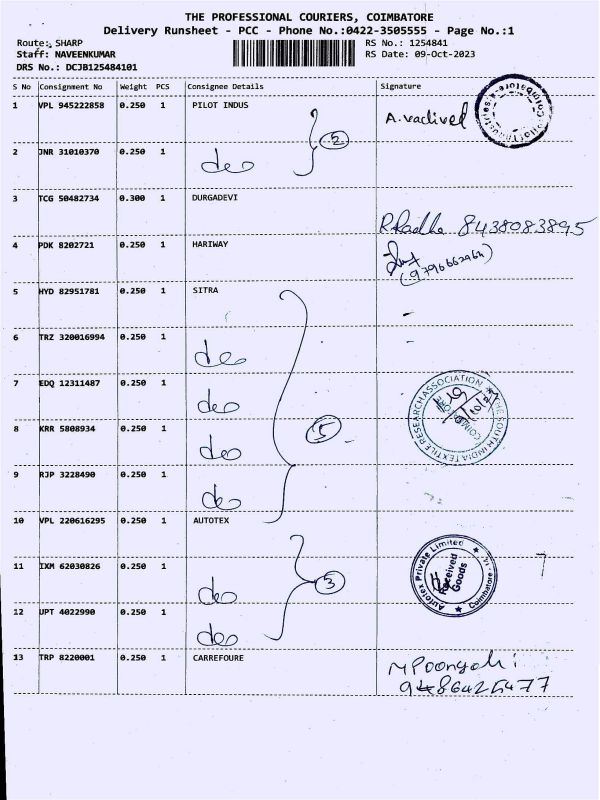 THE PROFESSIONAL COURIERS, COIMBATORE
Delivery Runsheet - PCC - Phone No.:0422-3505555 - Page No.:1
Route: SHARP RS No.: 1254841
Staff: NAVEENKUMAR RS Date: 09-Oct-2023
DRS No.: DCJB125484101
S No Consignment No Weight PCS Consignee Details Signature
1 VPL 945222858 0.250 1 PILOT INDUS A. vadivel
2 JNR 31010370 0.250 1 deo 2
3 TCG 50482734 0.300 1 DURGADEVI R Radha 8438083895
4 PDK 8202721 0.250 1 HARIWAY
5 HYD 82951781 0.250 1 SITRA
6 TRZ 320016994 0.250 1 deo
7 EDQ 12311487 0.250 1 deo THE SOUTH INDIA TEXTILE RESEARCH ASSOCIATION
8 KRR 5808934 0.250 1 deo 5
9 RJP 3228490 0.250 1 deo
10 VPL 220616295 0.250 1 AUTOTEX
11 IXM 62030826 0.250 1 deo 3 Autotex Private Limited Received Goods Coimbatore
12 UPT 4022990 0.250 1 deo
13 TRP 8220001 0.250 1 CARREFOURE
9486425477